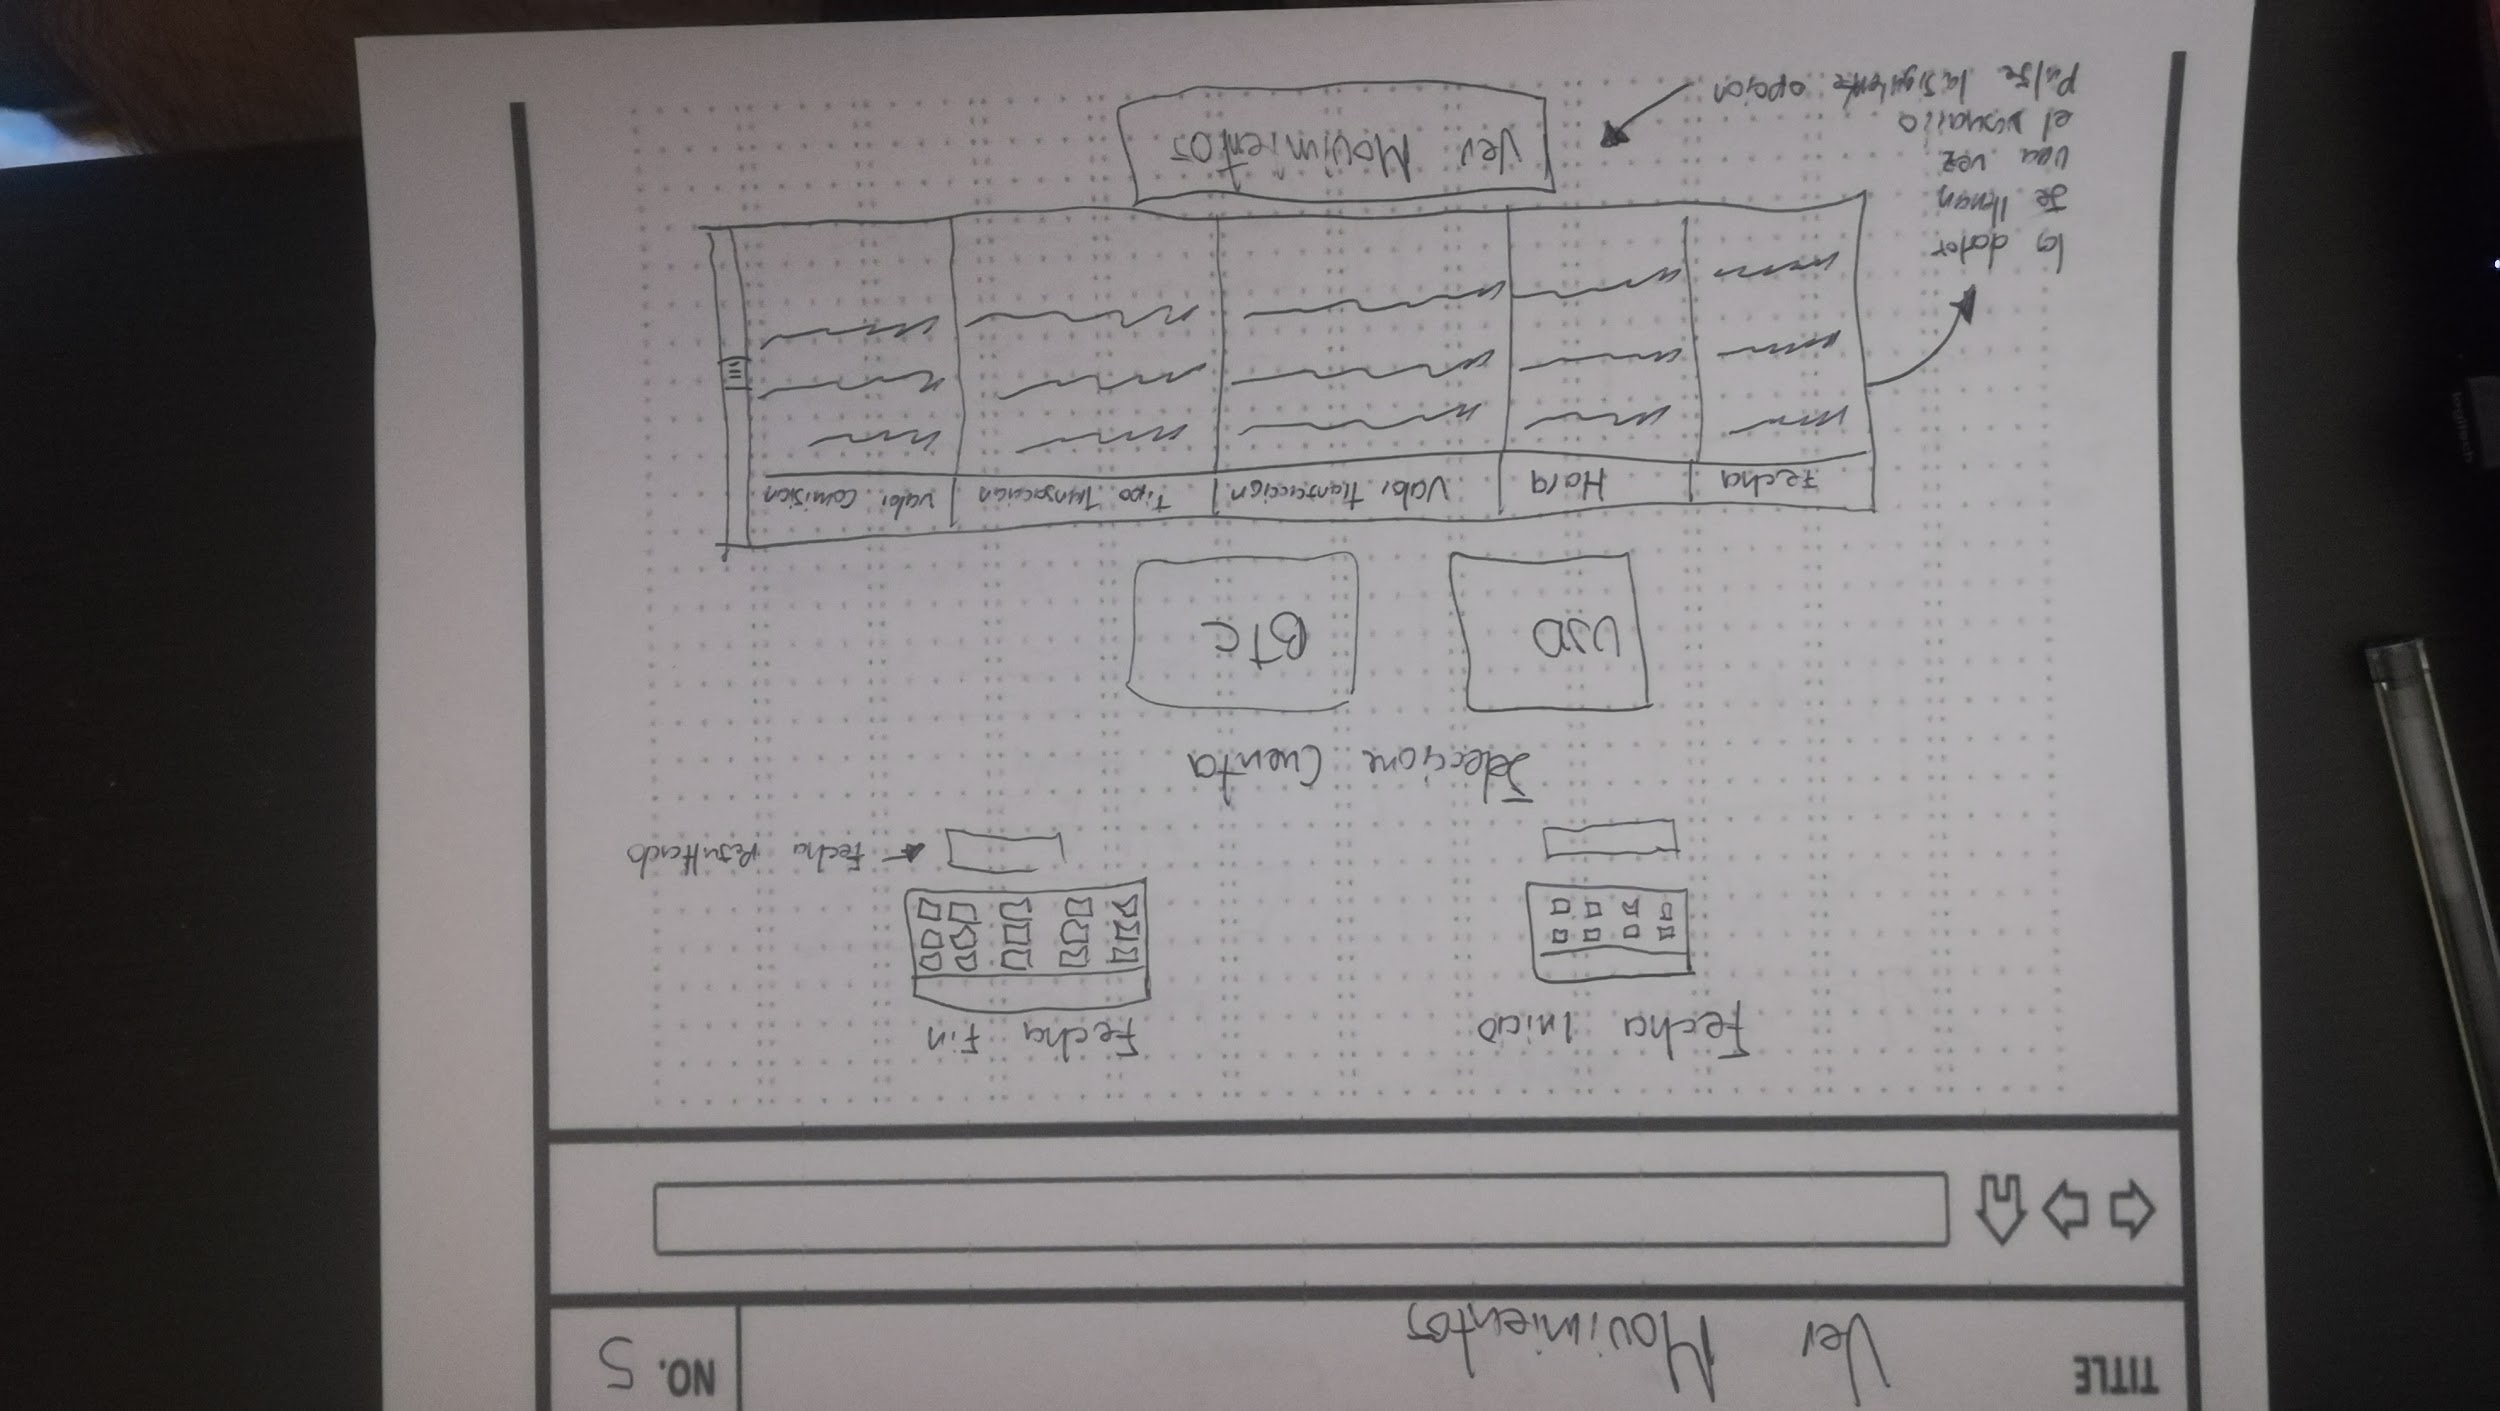 TITLE Ver Movimientos NO. 5
Fecha Inicio Fecha Fin
← Fecha Resultado
Seleccione Cuenta
USD BTC
Fecha Hora Valor Transaccion Tipo Transaccion Valor Comision
Ver Movimientos
los datos
se llenan
una vez
el usuario
pulse la siguiente opcion